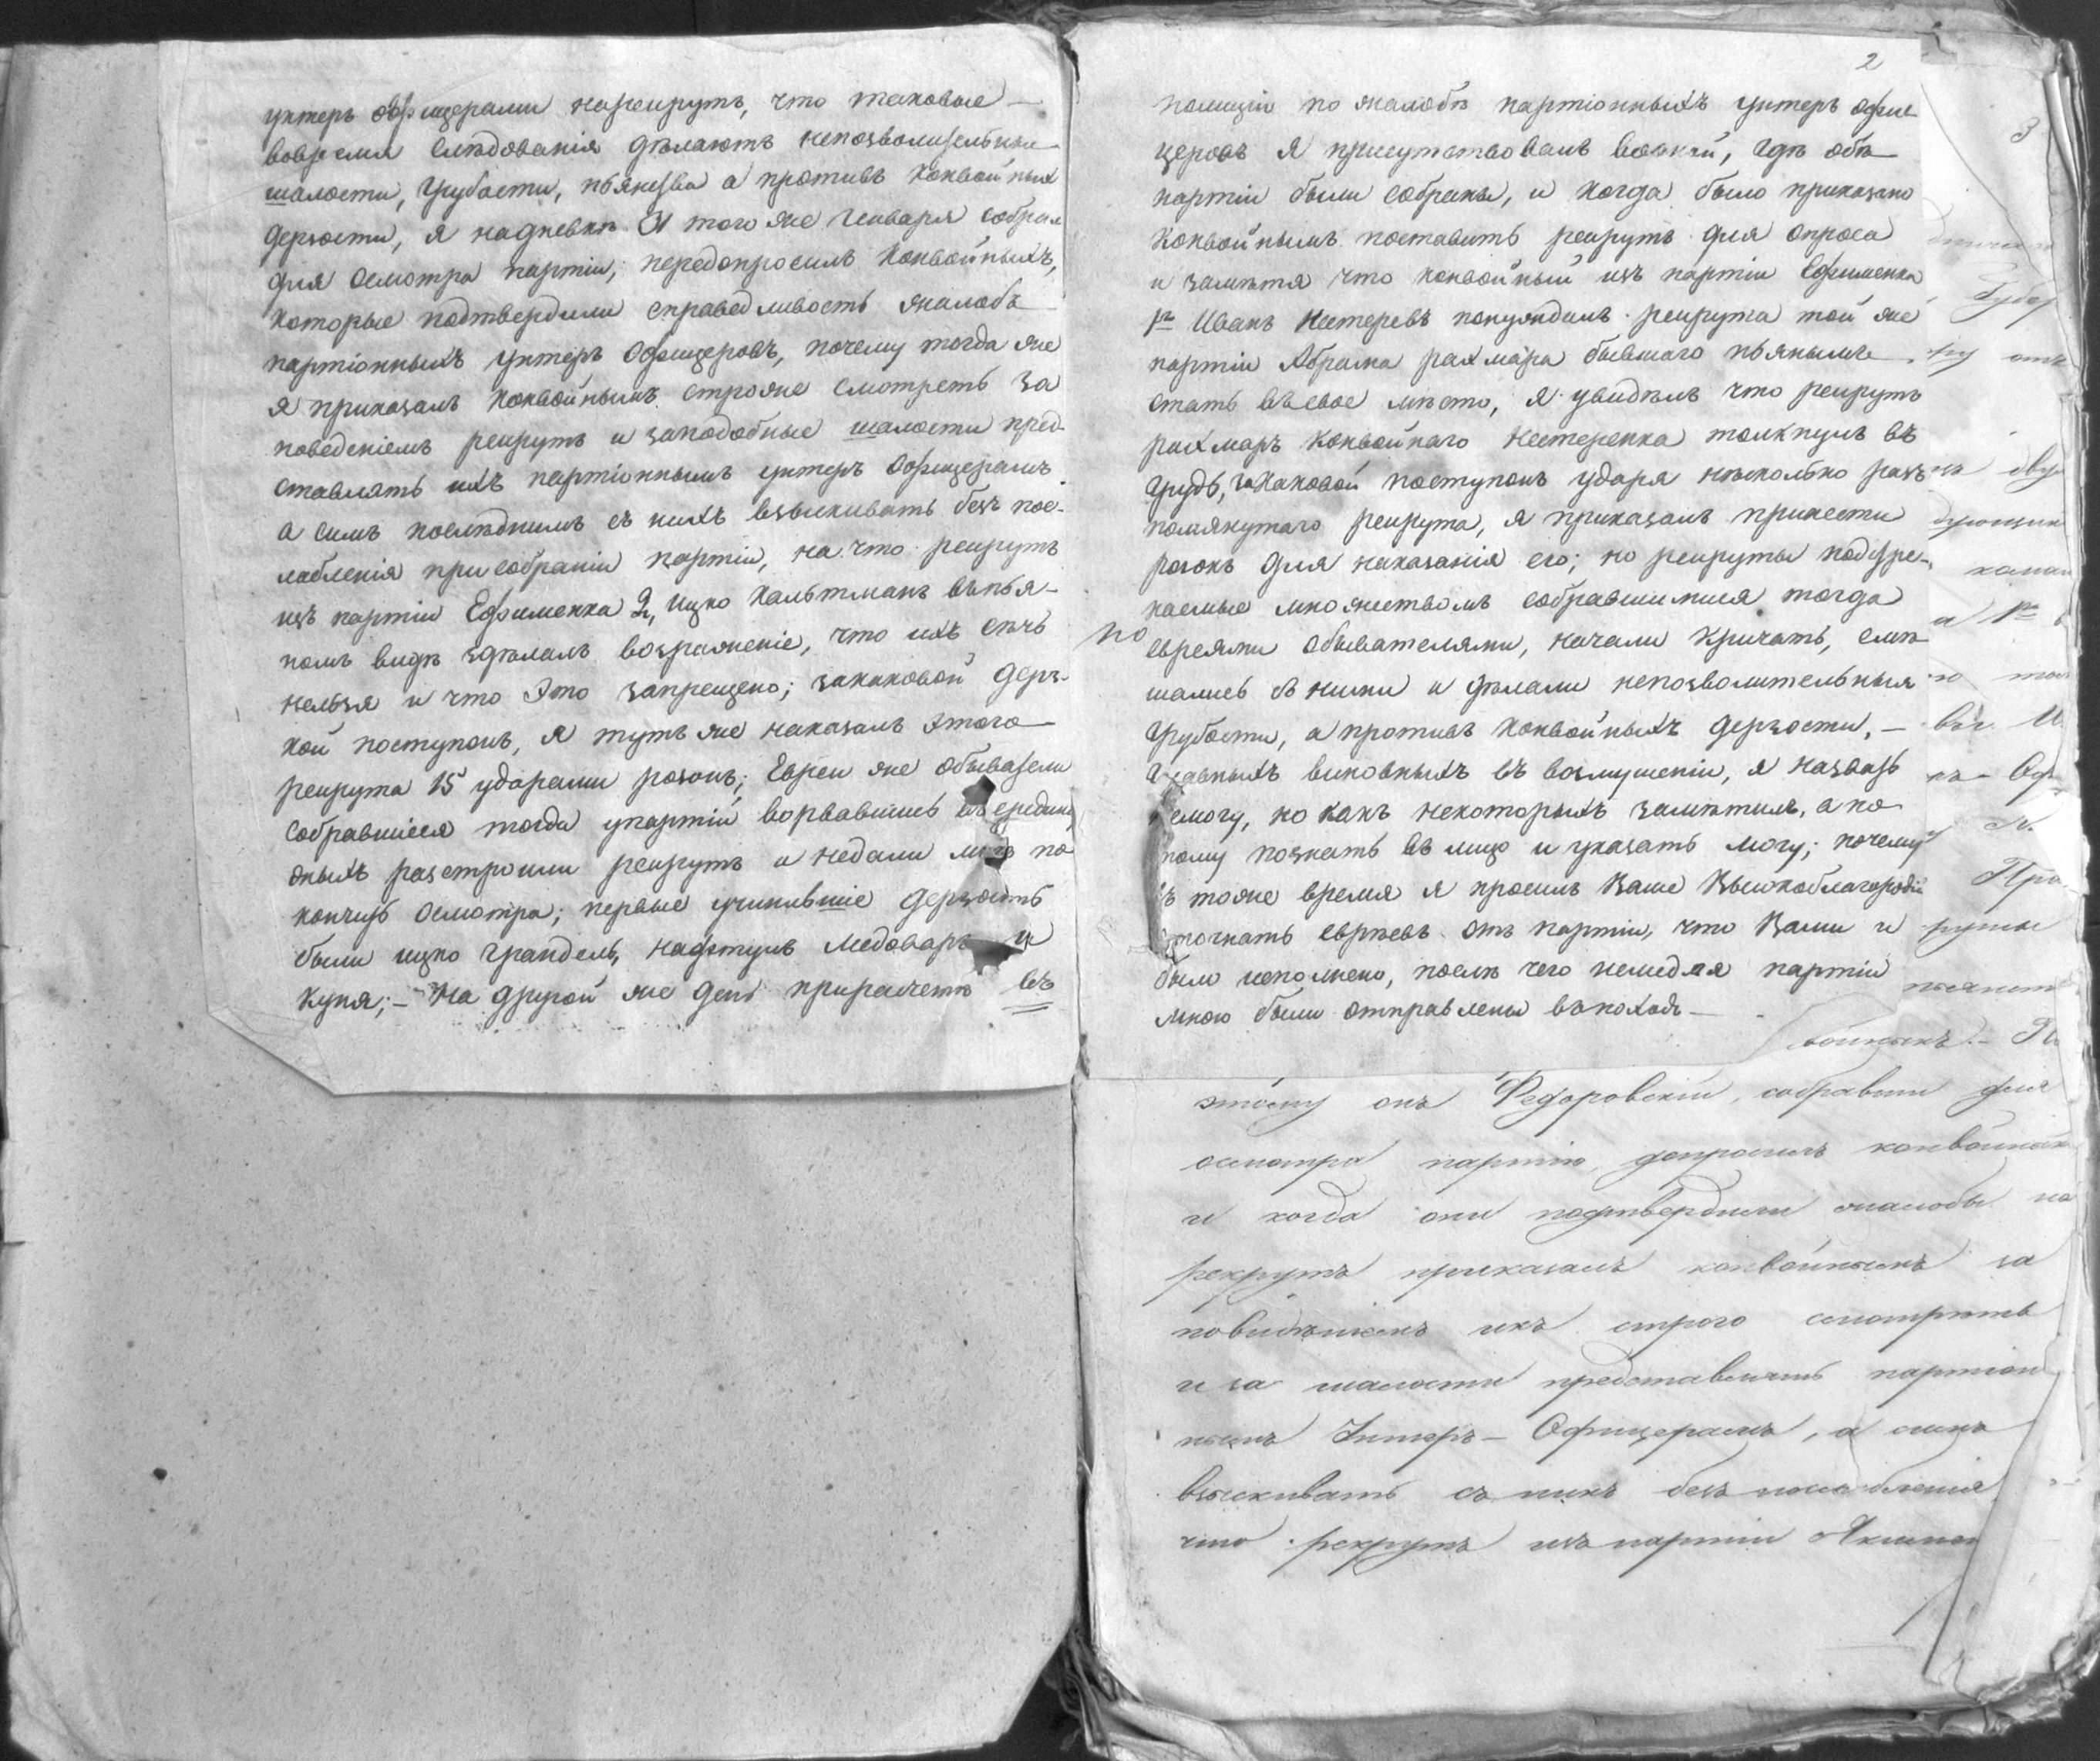 унтеръ офицерами нарекрутъ, что таковые —
вовремя слѣдованія дѣлаютъ непозволительные
шалости, грубости, пьянства а противъ конвойныхъ
дерзости, я надневкѣ 31 того же генваря собрал
для осмотра партіи, передопросилъ конвойныхъ,
которые подтвердили справедливость жалобъ
партіонныхъ унтеръ офицеровъ, почему тогда же
я приказалъ конвойнымъ строже смотреть за
поведеніемъ рекрутъ и заподобные шалости пред-
ставлять ихъ партіоннымъ унтеръ офицерамъ
а симъ послѣднимъ съ нихъ взыскивать безъ пос-
лабленія при собраніи партіи, на что рекрутъ
изъ партіи Ефименка 2, Ицко Кальтманъ въ пья-
номъ видѣ здѣлалъ возраженіе, что ихъ сѣчь
нельзя и что это запрещено; закаковой дерз-
кой поступокъ, я тутъ же наказалъ этого
рекрута 15 ударами розокъ; Евреи же обыватели
собравшіеся тогда упартіи ворвавшись въ середину
оныхъ разстроили рекрутъ и недали мнѣ по
кончить осмотра; первые учинившіе дерзость
были ицко Грандель, нафтулъ Медоваръ и
Купя; — На другой же день прирасчетѣ въ
2
полиціи по жалобѣ партіонныхъ унтеръ офи
церовъ я присутствовалъ вовсей, гдѣ обѣ
партіи были собраны, и когда было приказано
конвойнымъ поставить рекрутъ для опроса
и замѣтя что конвойный изъ партіи Ефименка
1й Иванъ Нестеревъ понуждалъ рекрута той же
партіи Абрама рахмара бывшаго пьянымъ
стать въ свое мѣсто, я увидѣлъ что рекрутъ
рахмаръ конвойнаго Нестеренка толкнулъ въ
грудь, за каковой поступокъ ударя нѣсколько разъ
помянутаго рекрута, я приказалъ принести
розокъ для наказанія его; но рекруты подстре-
каемые множествомъ собравшимися тогда
по
евреями обывателями, начали кричать, смѣ
шались съ ними и дѣлали непозволительныя
грубости, а противъ конвойныхъ дерзости, —
главныхъ виновныхъ въ возмущеніи, я назвать
немогу, но какъ некоторыхъ замѣтилъ, а по
тому познать въ лицо и указать могу; почему
въ тоже время я просилъ Ваше Высокоблагородіе
отогнать евреевъ отъ партіи, что Вами и
было исполнено, послѣ чего немедля партіи
мною были отправлены въ походъ —
3
этому онъ Федоровскій, собравши для
осмотра партію, допросилъ конвойныхъ
и когда они подтвердили жалобы на
рекрутъ приказалъ конвойнымъ за
поведѣніемъ ихъ строго смотрѣть
и за шалости представлять партіон
нымъ Унтеръ — Офицерамъ, а симъ
взыскивать съ нихъ безъ послабленія
что рекрутъ изъ партіи Якимен